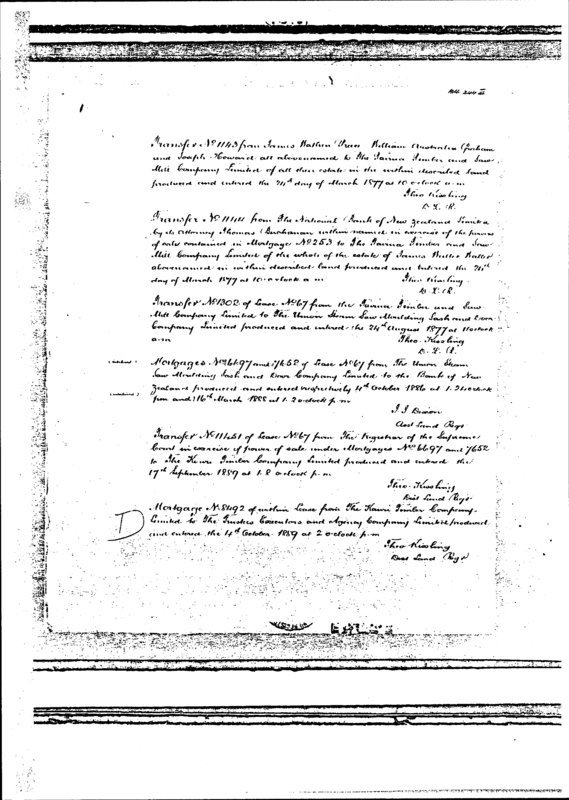 Transfer No 1143 from James William Australia Graham
and Joseph Howard all abovenamed to The Tairua Timber and Saw
Mill Company Limited of all their estate in the within described land
produced and entered the day of March 1877 at 10 oclock a.m
Theo Kissling
D. L. R.
Transfer No 1144 from The National Bank of New Zealand Limited
by its Attorney Thomas Buchanan within named in exercise of the power
of sale contained in Mortgage No 253 to The Tairua Timber and Saw
Mill Company Limited of the whole of the estate of James
abovenamed in within described land produced and entered the
day of March 1877 at 10 oclock a m
Theo Kissling
D. L. R.
Transfer No 1302 of Lease No 67 from the Tairua Timber and Saw
Mill Company Limited to The Union Steam Saw Moulding Sash and Door
Company Limited produced and entered the 24th August 1877 at 11 oclock
a.m
Theo. Kissling
D. L. R.
Mortgages Nos 6697 and 7652 of Lease No 67 from The Union Steam
Saw Moulding Sash and Door Company Limited to the Bank of New
Zealand produced and entered respectively 4th October 1886 at oclock
p m and 16th March 1888 at 1. 20 oclock p. m
Asst Land Regr
Transfer No 11451 of Lease No 67 from The Registrar of the Supreme
Court in exercise of power of sale under Mortgages Nos 6697 and 7652
to The Kauri Timber Company Limited produced and entered the
17th September 1889 at 1. 8 oclock p. m
Theo. Kissling
Dist Land Regr
D
Mortgage No 8492 of within Lease from The Kauri Timber Company
Limited to The Trustees Executors and Agency Company Limited produced
and entered the 4th October 1889 at 2 oclock p.m
Theo Kissling
Dist Land Regr